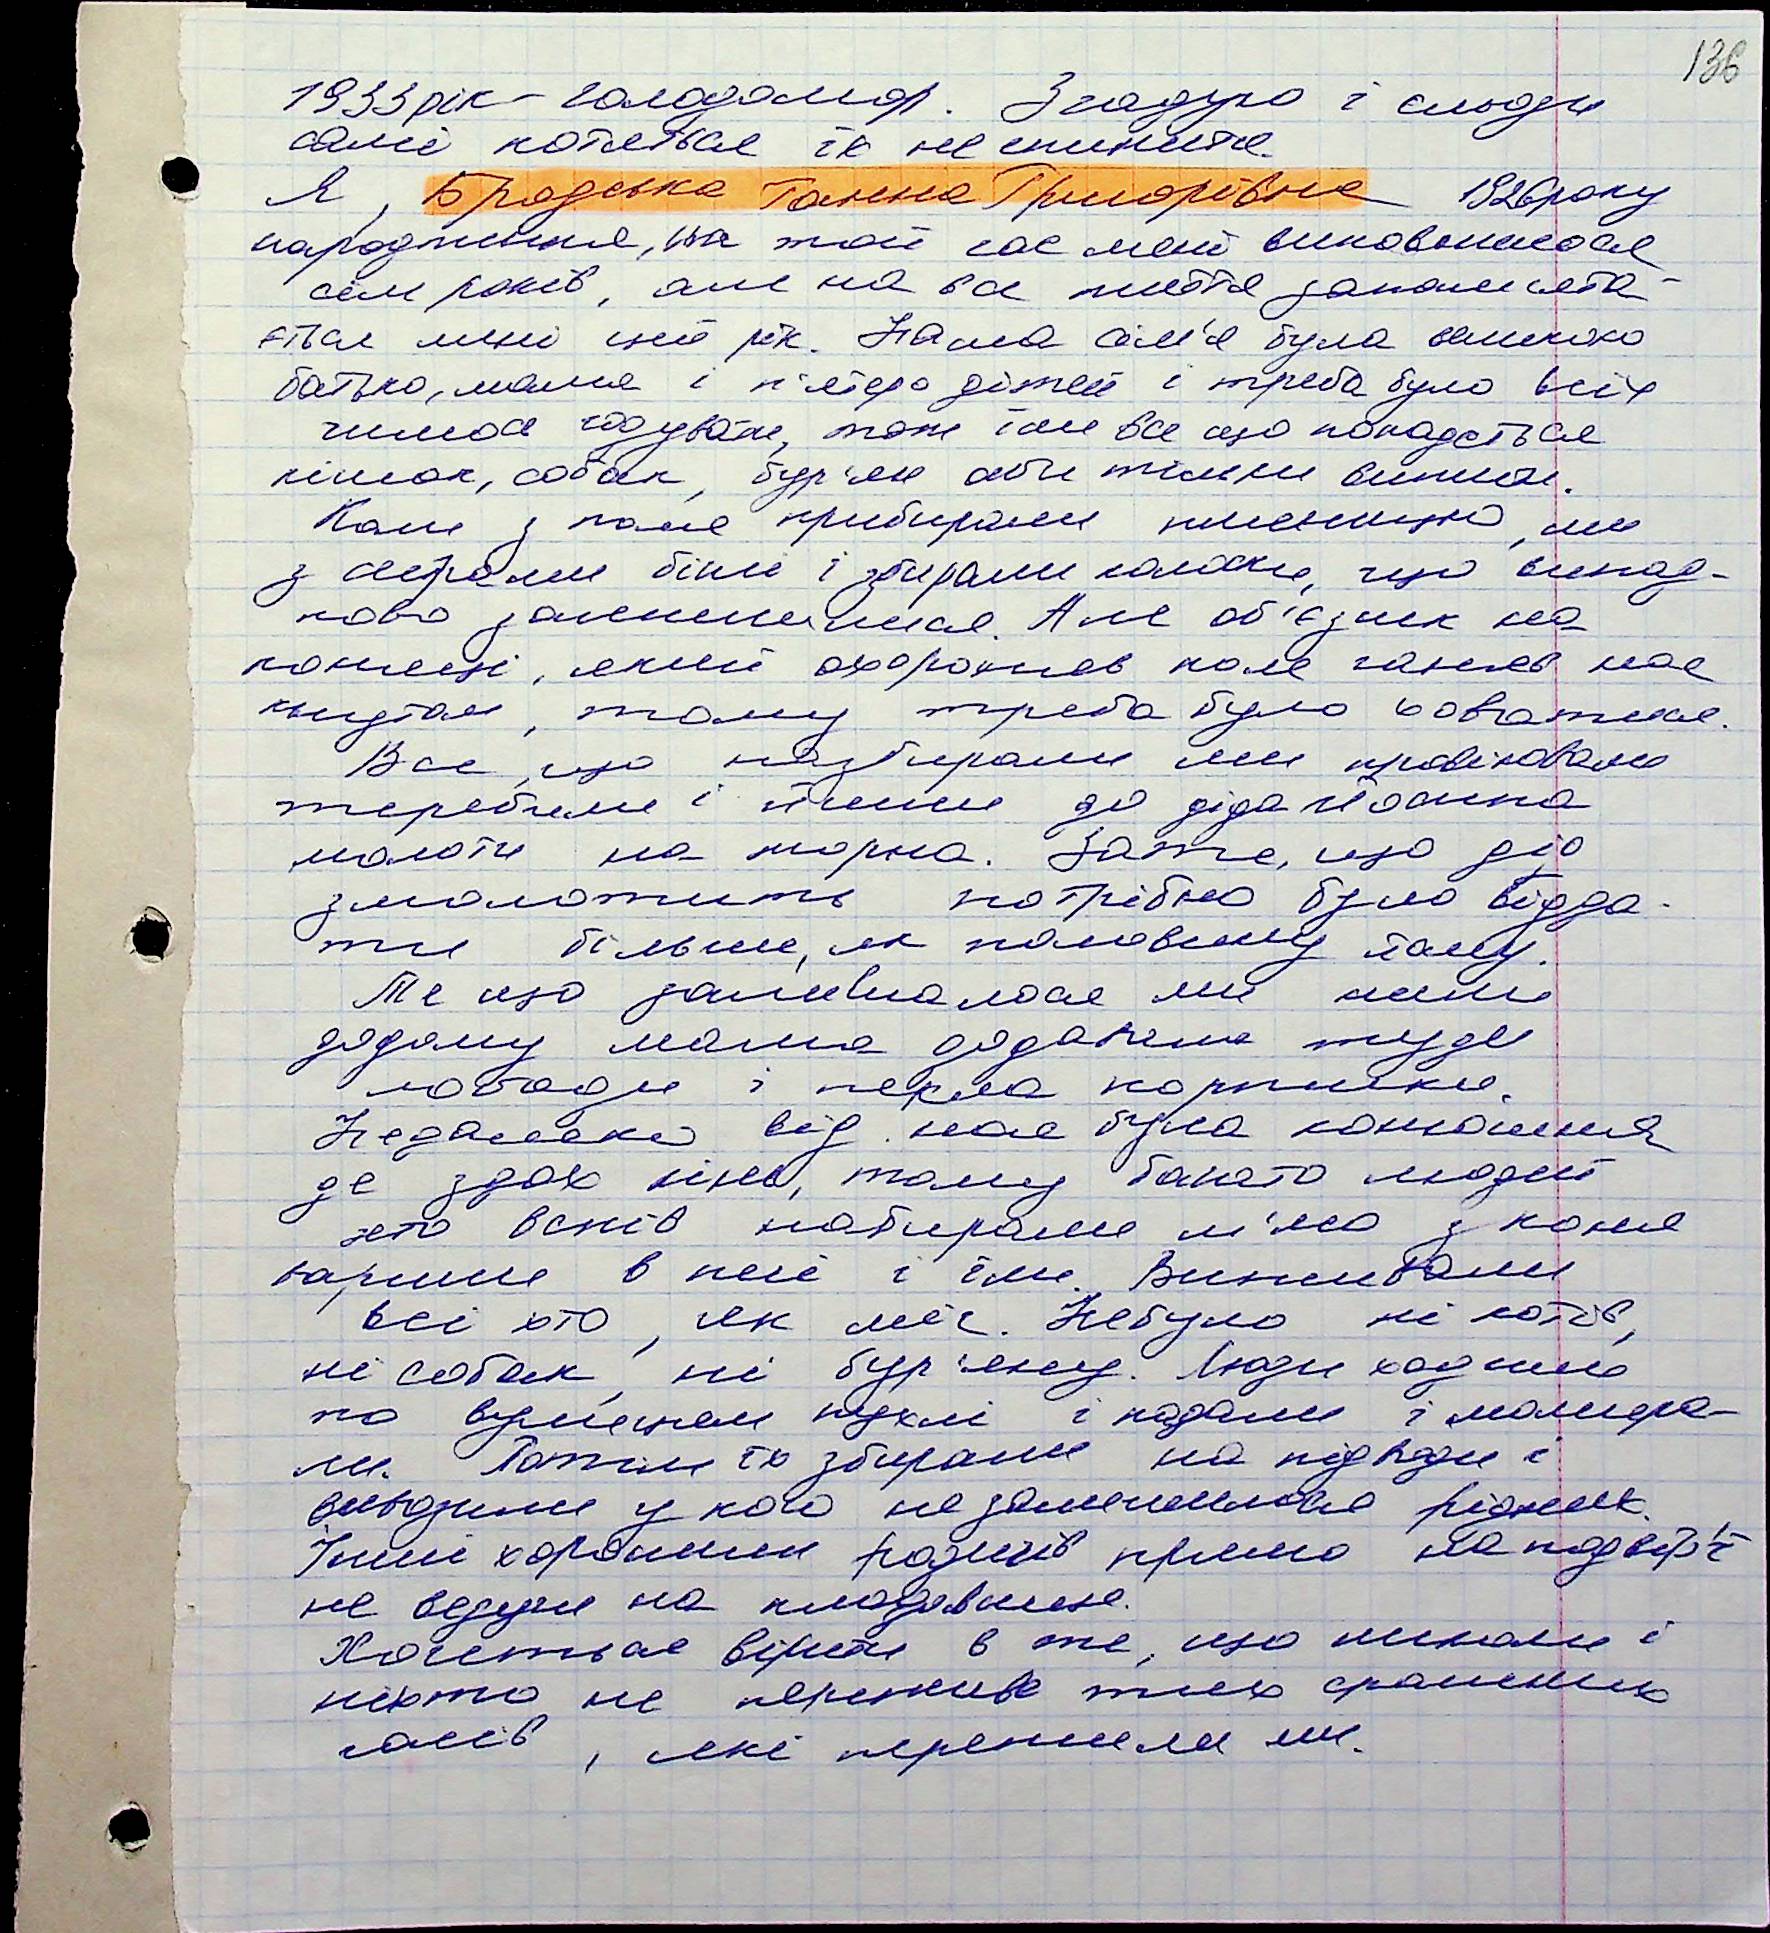 136
1933 рік – голодомор. Згадую і сльози
самі котяться їх не спинити.
Я, Бродська Ганна Григорівна 1926 року
народження, на той час мені виповнилося
сім років, але на все життя запамʼята-
ється мені цей рік. Наша сімʼя була великою
батько, мама і пʼятеро дітей і треба було всіх
чимось годувати, тож їли все що попадеться
кішок, собак, бурʼян аби тільки вижити.
Коли з поля прибирали пшеницю, ми
з сестрами бігли і збирали колоски, що випад-
ково залишилися. Але обʼєзчик на
конеші, який охороняв поле ганяв нас
кнутом, тому треба було ховатися.
Все, що назбирали ми провіювали
теребили і йшли до діда Йосипа
молоти на жорна. Затте, що дід
змолотить потрібно було відда-
ти більше, як половину йому.
Те що залишалося ми несли
додому мама додавала туди
лободи і пекла коржики.
Недалеко від нас була конюшня
де здох кінь, тому багато людей
хто встиг набирали мʼясо з коня
варили в печі і їли. Виживали
всі хто, як міг. Небуло ні котів,
ні собак, ні бурʼяну. Люди ходили
по вулицям пухлі і падали і помира-
ли. Потім їх збирали на підводи і
вивозили у кого не залишилося рідних.
Інші хоронили родичів прямо на подвірʼї
не везучи на кладовище.
Хочеться вірити в те, що ніколи і
ніхто не переживе тих страшних
часів, які пережили ми.